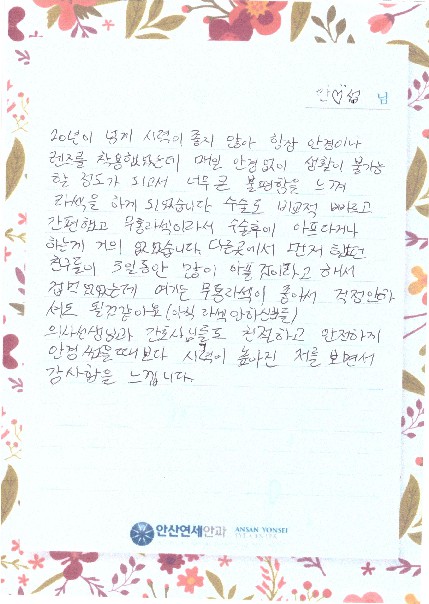 안♡섭 님
20년이 넘게 시력이 좋지 않아 항상 안경이나
렌즈를 착용했었는데 매일 안경없이 생활이 불가능
할 정도가 되고서 너무 큰 불편함을 느껴
라섹을 하게 되었습니다 수술도 비교적 빠르고
간편했고 무통라섹이라서 수술후에 아프다거나
하는게 거의 없었습니다. 다른곳에서 먼저 했던
친구들이 3일동안 많이 아플 거라고 해서
겁먹었는데 여기는 무통라섹이 좋아서 걱정안하
셔도 될것같아요 (아직 라섹안하신분들)
의사선생님과 간호사님들도 친절하고 안전하게
안경썼을때보다 시력이 높아진 저를 보면서
감사함을 느낍니다.
안산연세안과 ANSAN YONSEI
EYE CENTER